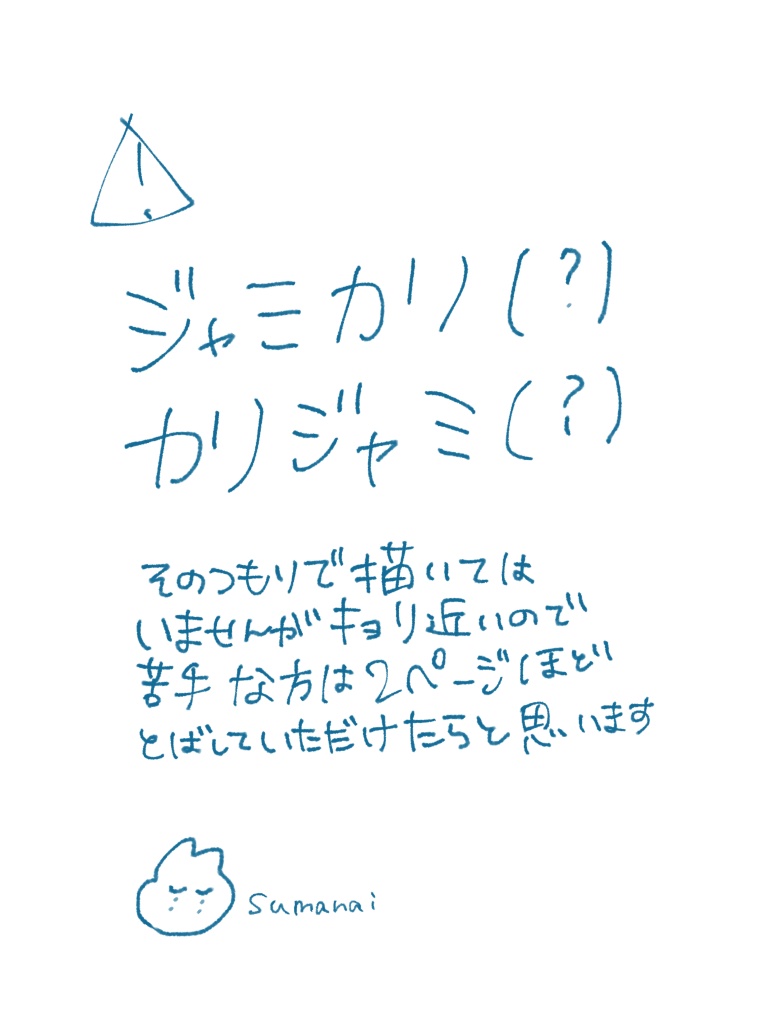 !
ジャミカリ(?)
カリジャミ(?)
そのつもりで描いては
いませんがキョリ近いので
苦手な方は2ページほど
とばしていただけたらと思います
sumanai